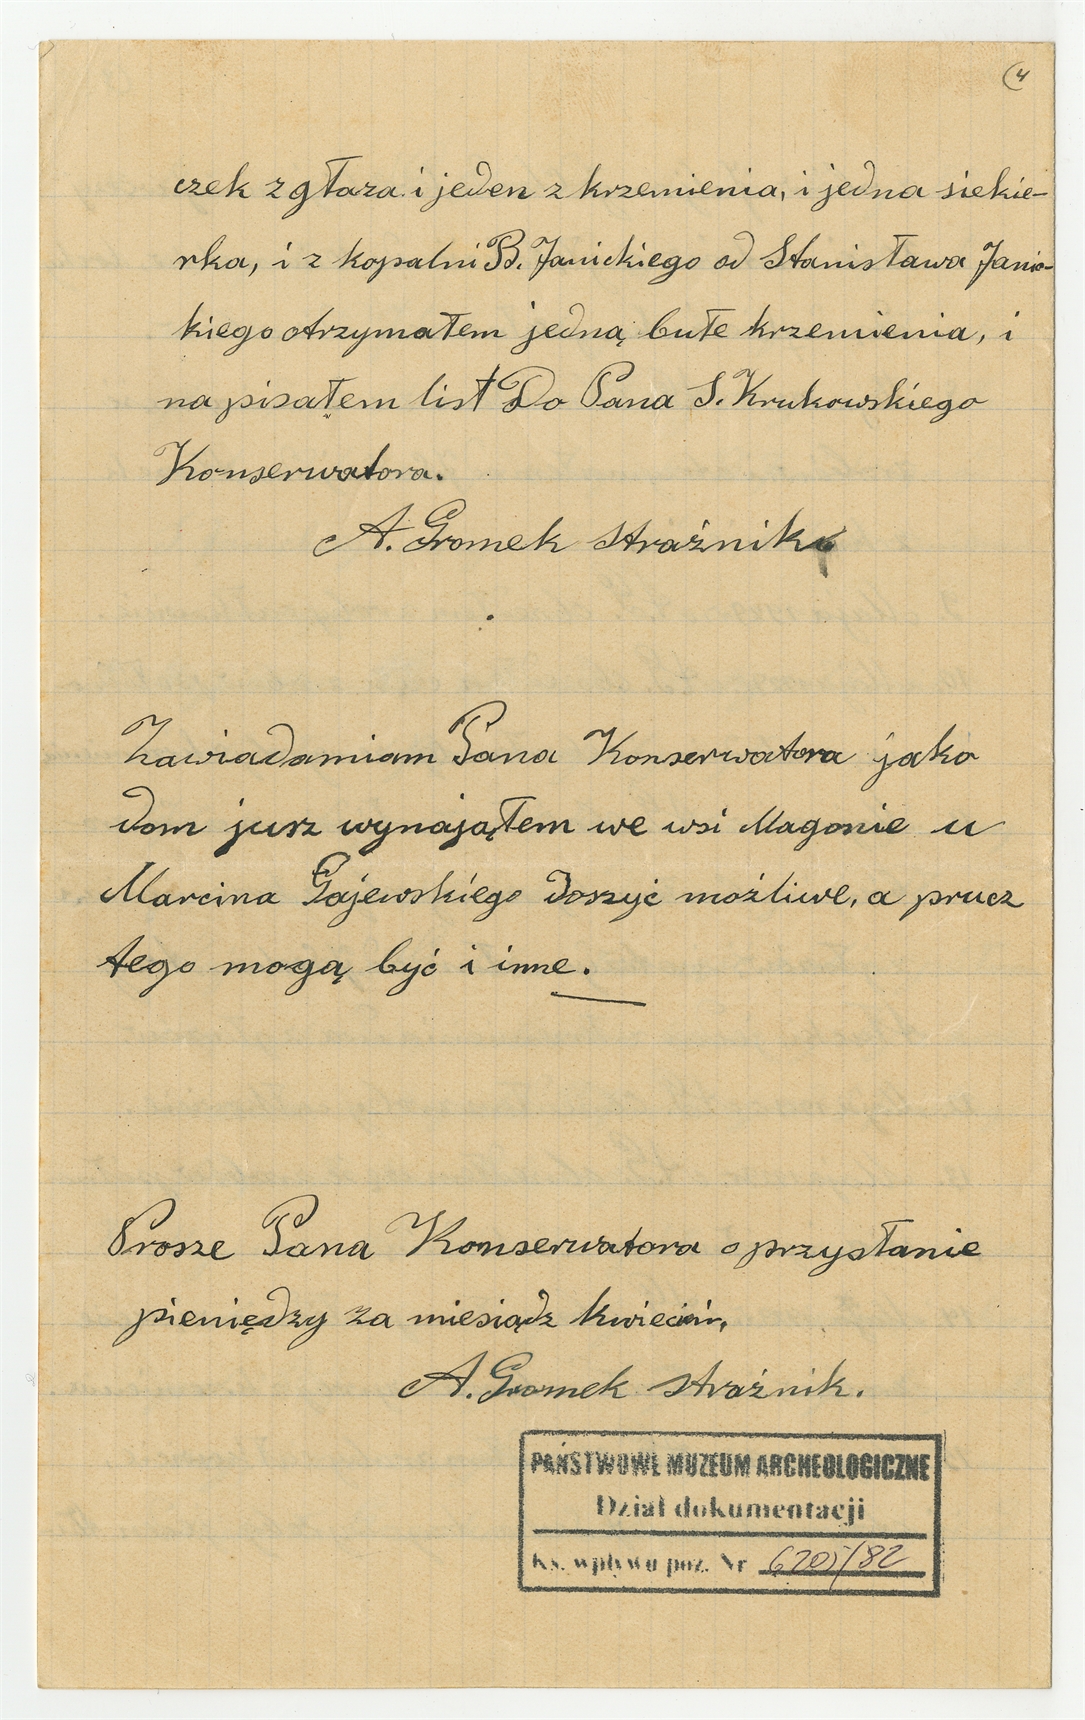 4
czek z głaza i jeden z krzemienia, i jedna siekie-
rka, i z kopalni B. Janickiego od Stanisława Janic-
kiego otrzymałem jedną bułe krzemienia, i
na pisałem list Do Pana S. Krukowskiego
Konserwatora.
A. Gromek strażnik
Zawiadamiam Pana Konserwatora jako
dom jusz wynająłem we wsi Magonie u
Marcina Gajewskiego doszyć możliwe, a prucz
tego mogą być i inne.
Prosze Pana Konserwatora o przysłanie
pieniędzy za miesiądz kwiecień,
A. Gromek strażnik.
PAŃSTWOWE MUZEUM ARCHEOLOGICZNE
Dział dokumentacji
Ks. wpływu poz. Nr 6205/82